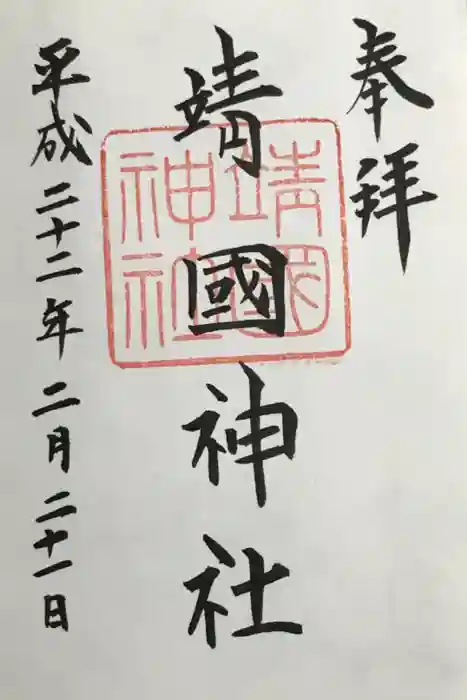 奉拝
靖國神社
靖國神社
平成二十二年二月二十一日